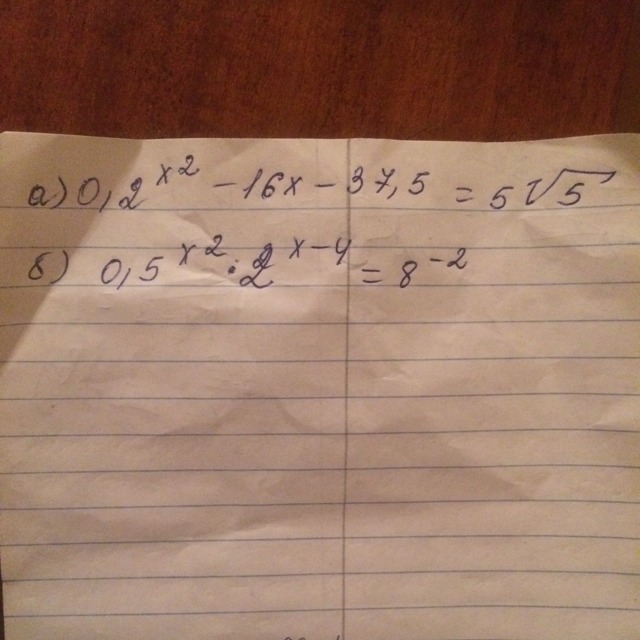 а) 0,2^x2 - 16x - 37,5 = 5√5
б) 0,5^x2 : 2^x-4 = 8^-2